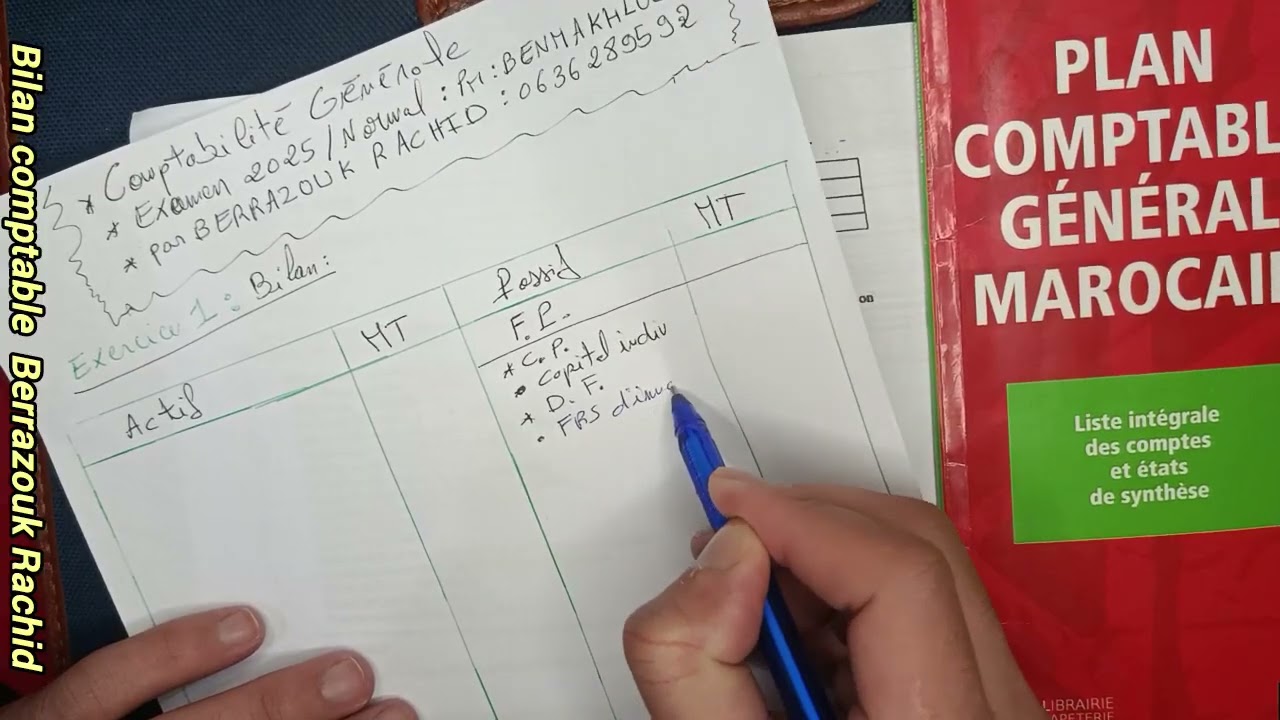 Bilan comptable Berrazouk Rachid
* Comptabilité Générale
* Examen 2025 / Normal : Pr : BENMAKHLOU
* par BERRAZOUK RACHID : 0636289592
Exercice 1 : Bilan :
Actif MT Passif MT
F.P.
* C.P.
• Capital indiv
* D.F.
• FRS d'imm
on
PLAN
COMPTABL
GÉNÉRAL
MAROCAI
Liste intégrale
des comptes
et états
de synthèse
LIBRAIRIE
APETERIE